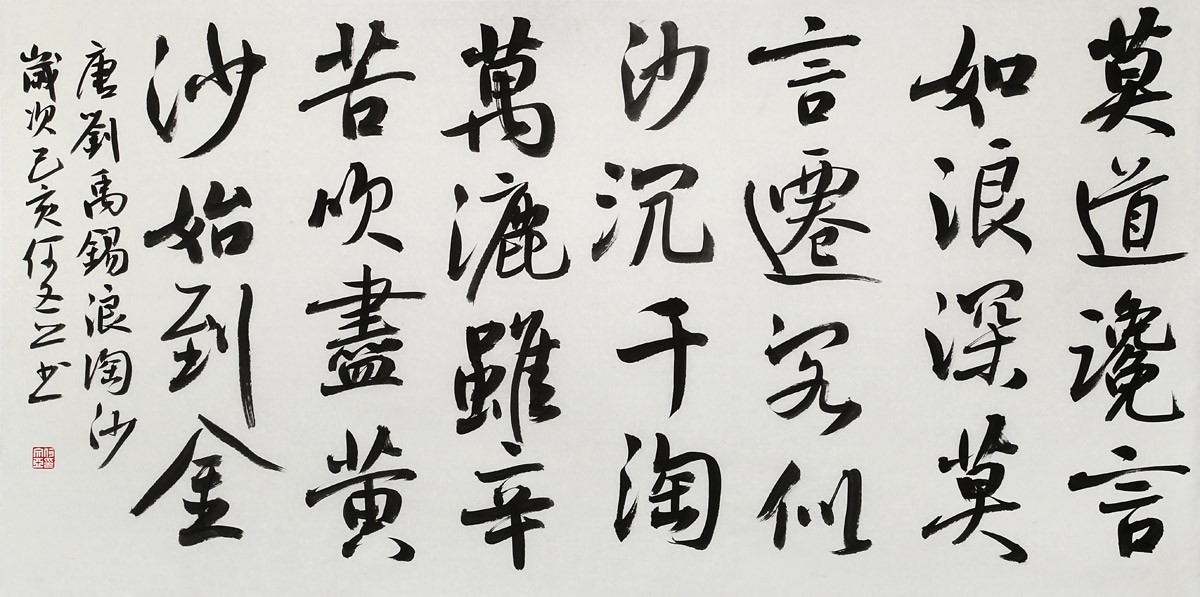 莫道讒言
如浪深莫
言遷客似
沙沉千淘
萬漉雖辛
苦吹盡黄
沙始到金
唐劉禹錫浪淘沙
歲次己亥何书